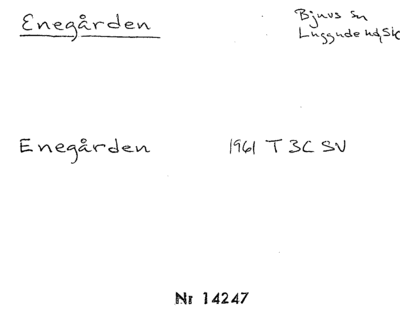 Enegården
Bjuvs sn
Luggude hd, Sk
Enegården 1961 T 3C SV
Nr 14247